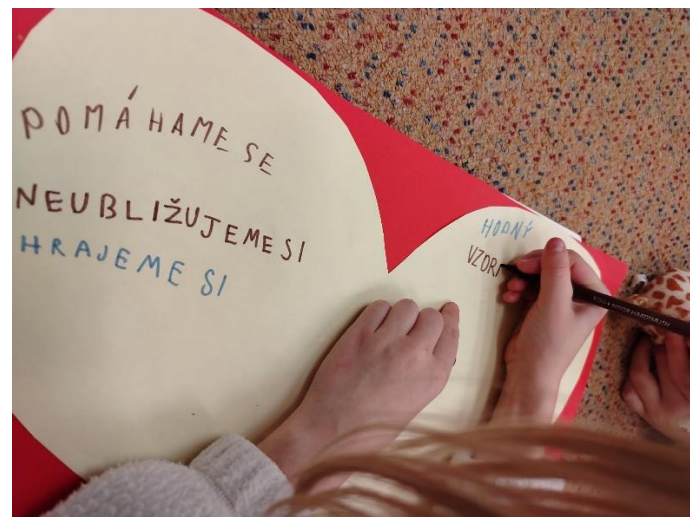 POMÁHAME SE
NEUBLIŽUJEME SI
HRAJEME SI
HODNÝ
VZOR